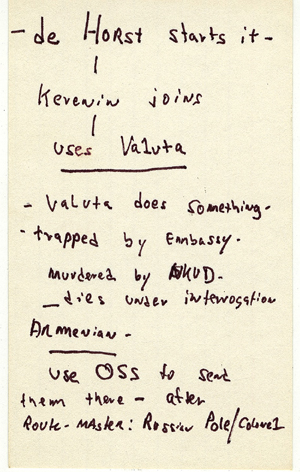 - de HORST starts it -
Kerenin joins
uses Valuta
- Valuta does something.
- trapped by Embassy.
murdered by NKVD.
_dies under interrogation
ARMENIAN -
use OSS to send
them there - after
ROUTE-MASTER: Russian Pole/Colonel